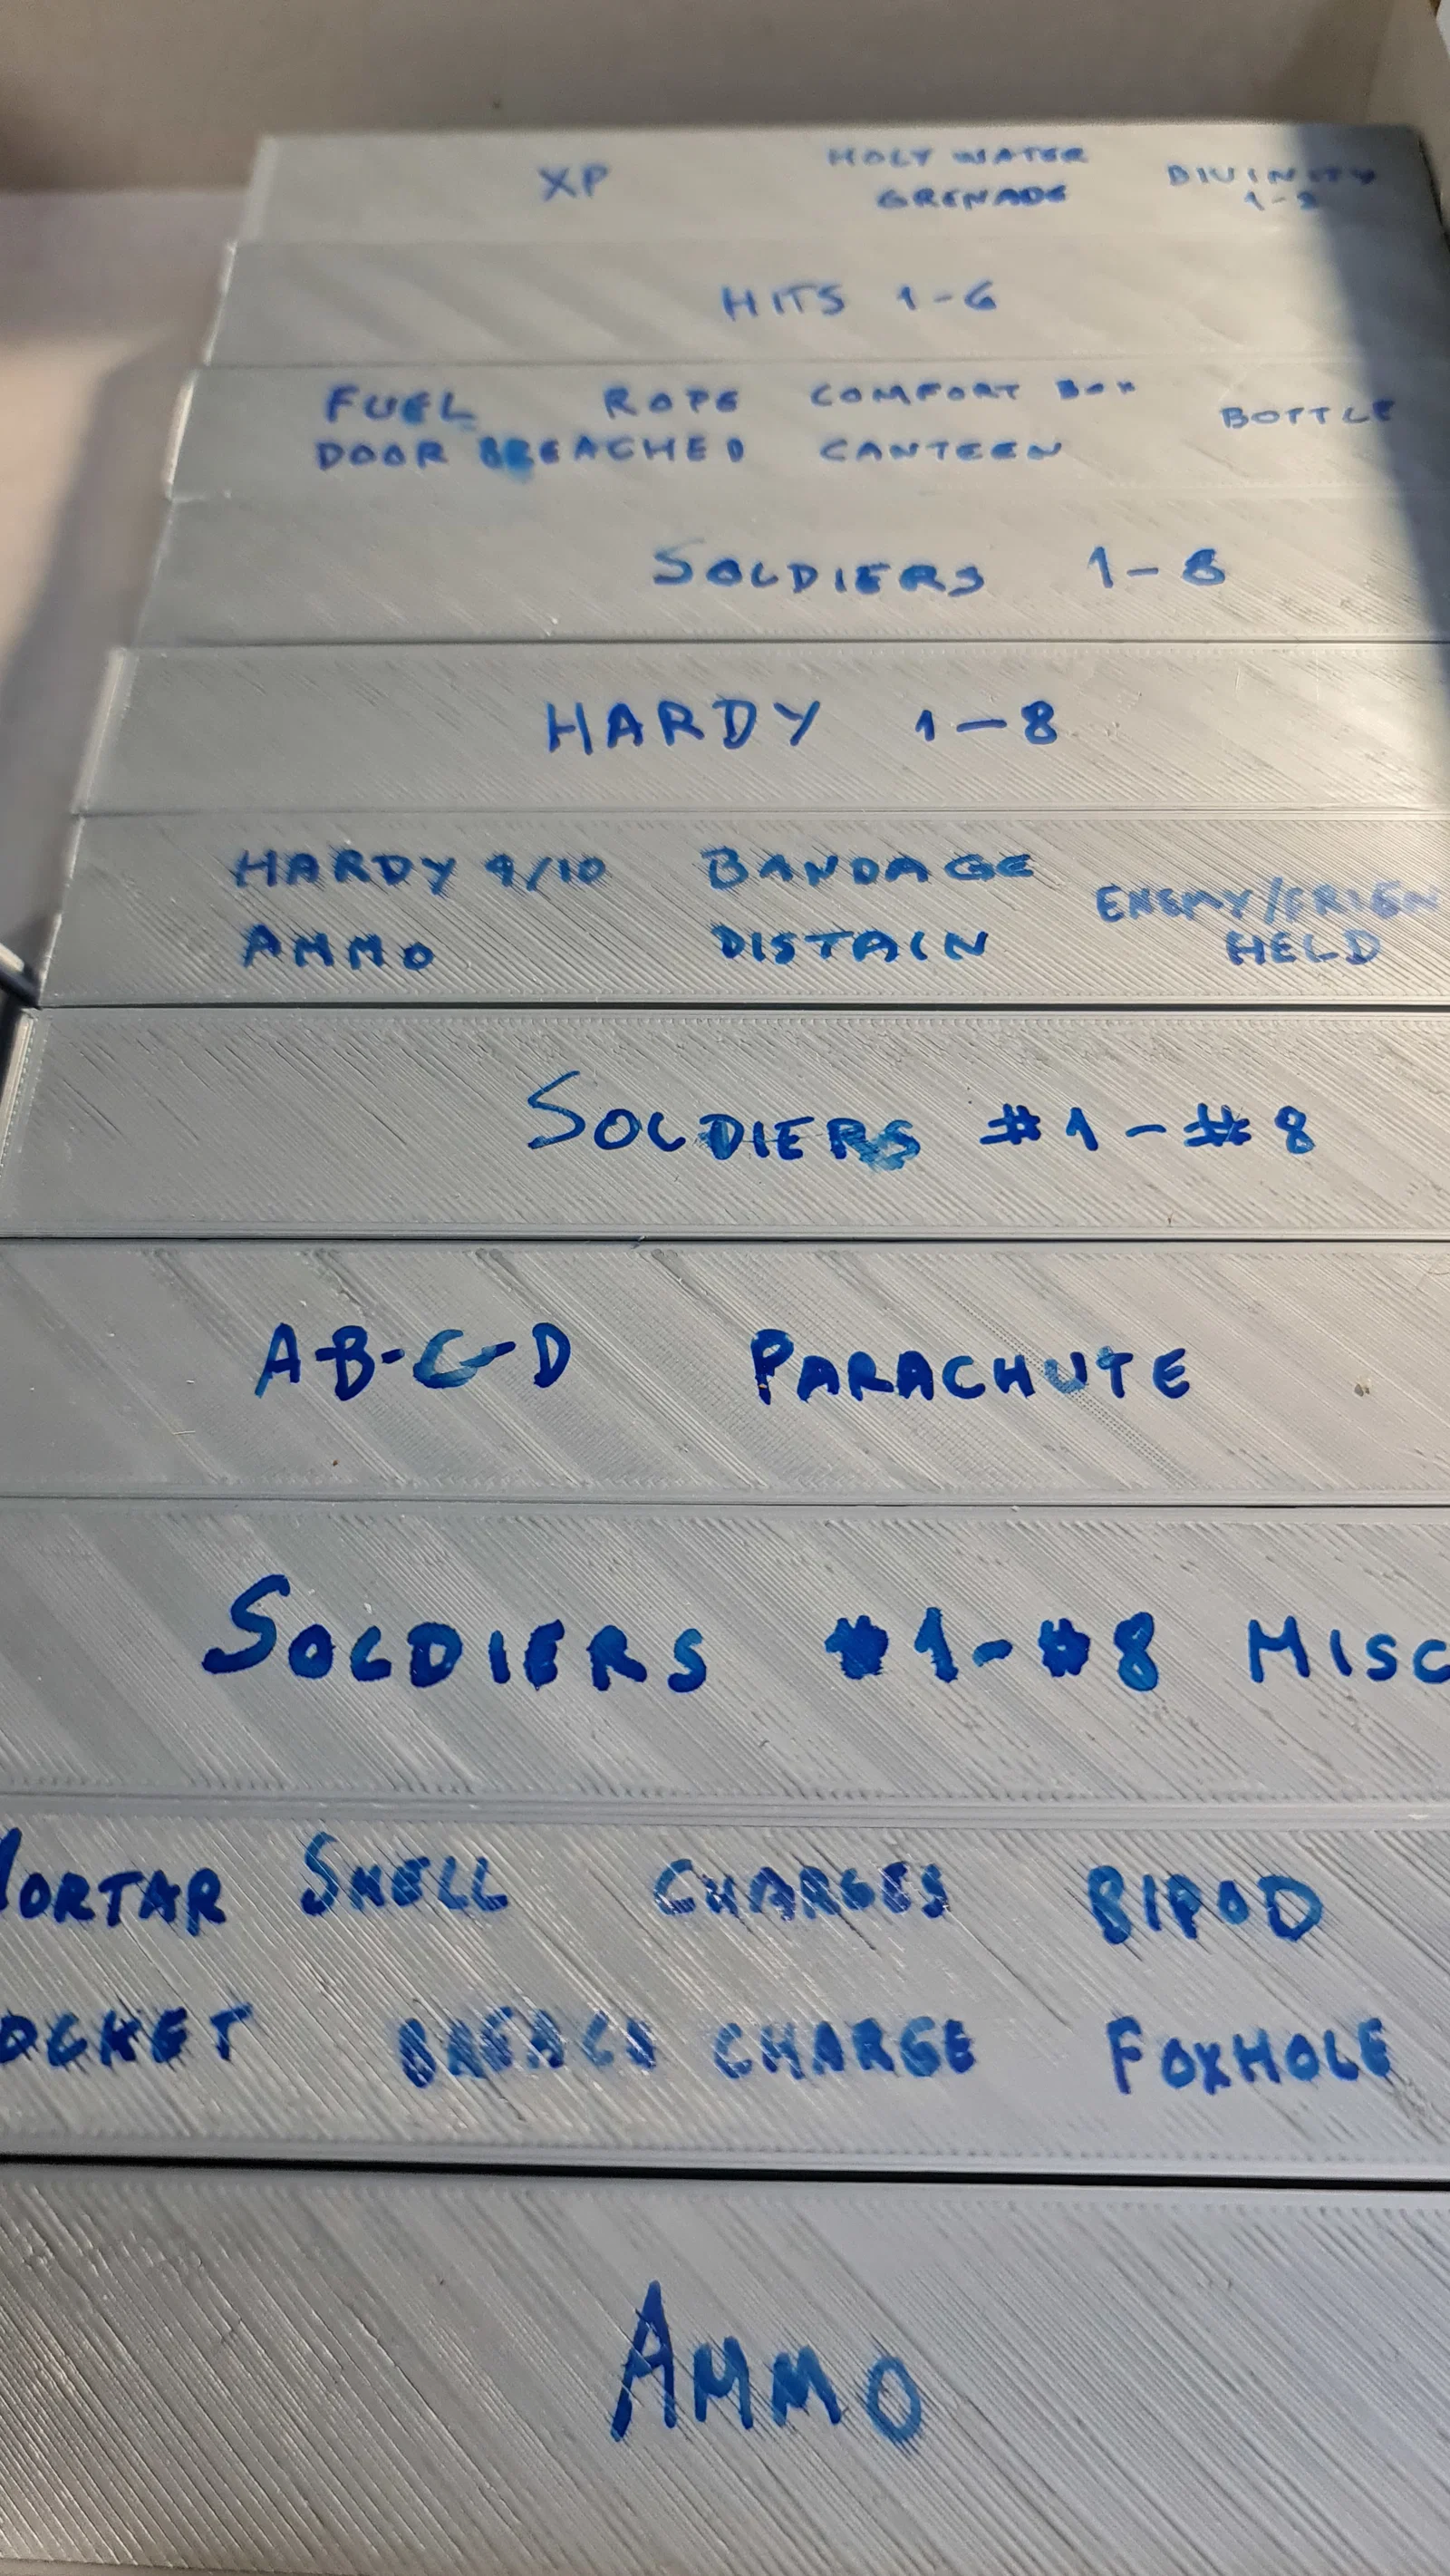 XP HOLY WATER DIVINITY
GRENADE 1-2
HITS 1-6
FUEL ROPE COMFORT BOX BOTTLE
DOOR BREACHED CANTEEN
SOLDIERS 1-8
HARDY 1-8
HARDY 9/10 BANDAGE ENEMY/FRIEN
AMMO DISTAIN HELD
SOLDIERS #1-#8
A-B-C-D PARACHUTE
SOLDIERS #1-#8 MISC
MORTAR SHELL CHARGES BIPOD
OCKET BREACH CHARGE FOXHOLE
AMMO